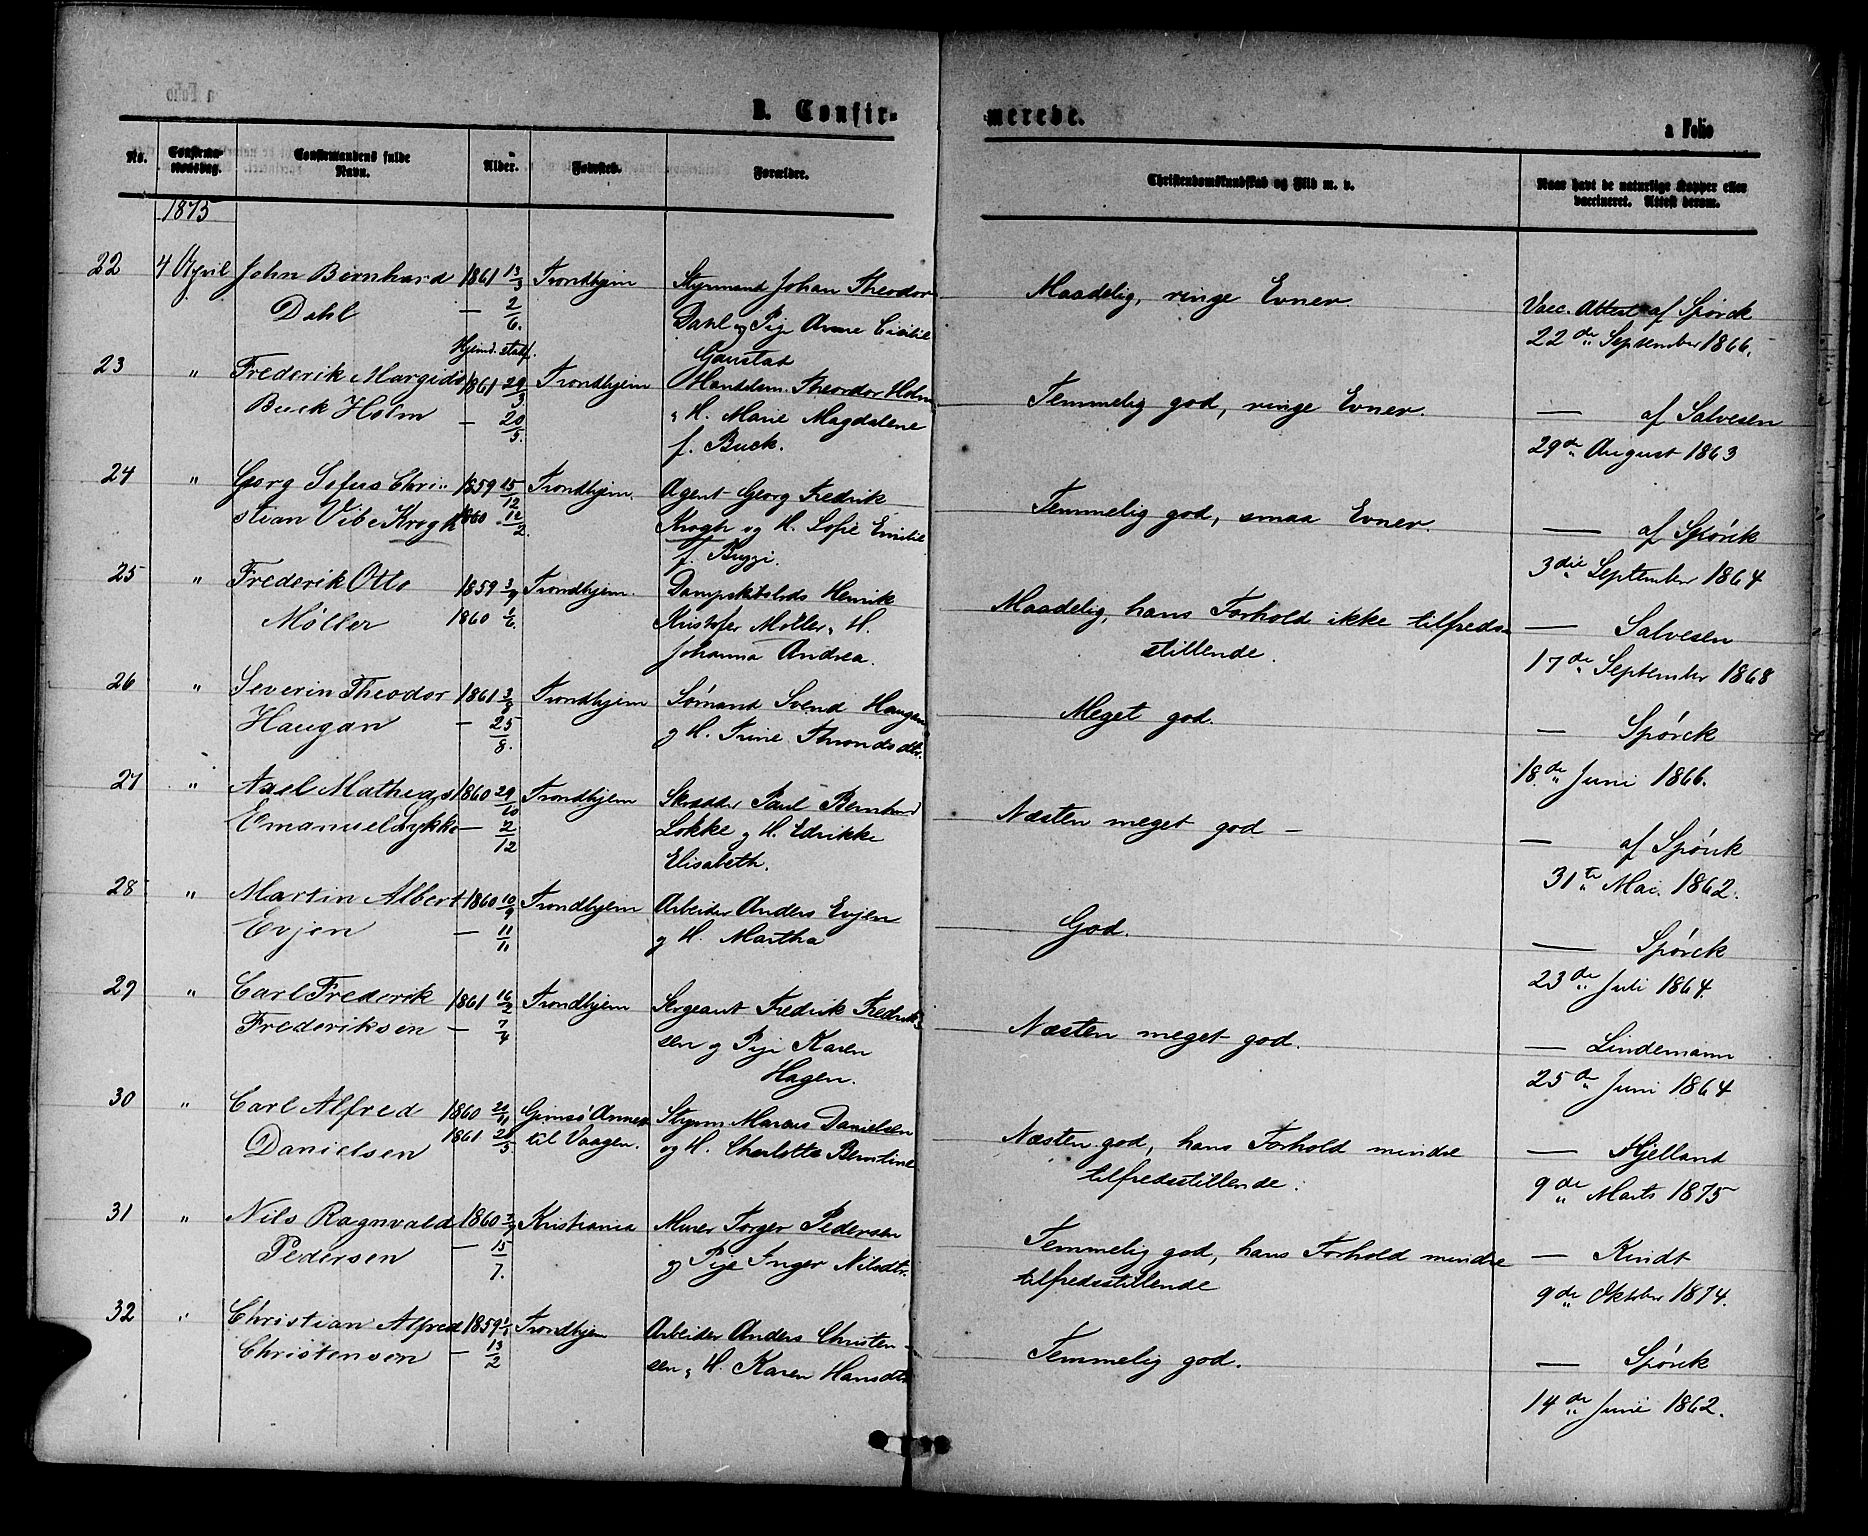 B. Confirmerede.
a Folio
No.
Confirmationsdag.
Confirmandens fulde Navn.
Alder.
Fødested.
Forældre.
Christendomskundskab og Flid m. v.
Naar havt de naturlige Kopper eller vaccineret. Attest derom.
1875
22 4 April John Bernhard 1861 13/3 Trondhjem Styrmand Johan Theodor Maadelig, ringe Evner. Vacc. Attest af Spørck
Dahl — 2/6. Dahl og Pije Anne Cicilie 22de September 1866.
Hjemd. stadf. Gaustad
23 " Frederik Margido 1861 29/3 Trondhjem Handelsm. Theordor Holm Temmelig god, ringe Evner. — af Salvesen
Buck Holm — 20/5. " H. Marie Magdalene 29de August 1863
f. Buck.
24 " Georg Sofus Chri- 1859 15/12 Trondhjem. Agent Georg Fredrik Temmelig god, smaa Evner. — af Spørck
stian Vibe Krogh 1860 12/2. Krogh og H. Sofie Emilie 3die September 1864
f. Buggi.
25 " Frederik Otto 1859 3/9 Trondhjem. Dampskibsløds Henrik Maadelig, hans Forhold ikke tilfreds- — Salvesen
Møller 1860 1/6. Kristofer Møller, H. stillende. 17de September 1868
Johanna Andrea.
26 " Severin Theodor 1861 3/8 Trondhjem Sømand Svend Haugan Meget god. — Spørck
Haugan — 25/8. og H. Trine Throndsdtr. 18de Juni 1866.
27 " Axel Mathias 1860 29/10 Trondhjem Skrædder Paul Bernhard Næsten meget god — — af Spørck
Emanuel Lykke — 2/12 Løkke og H. Edrikke 31te Mai 1862.
Elisabeth.
28 " Martin Albert 1860 10/9 Trondhjem Arbeider Anders Evjen God. — Spørck
Evjen — 11/11 og H. Martha 23de Juli 1864.
29 " Carl Frederik 1861 16/2 Trondhjem Sergeant Fredrik Fredrik- Næsten meget god. — Lindemann
Frederiksen — 7/4 sen og Pije Karen 25de Juni 1864
Hagen.
30 " Carl Alfred 1860 21/11 Gimsø Annex Styrm. Marcus Danielsen Næsten god, hans Forhold mindre — Kjelland
Danielsen 1861 28/5 til Vaagen. og H. Charlotte Berntine tilfredsstillende. 9de Marts 1875
31 " Nils Ragnvald 1860 Kristiania Murer Torger Pedersen Temmelig god, hans Forhold mindre — Kindt
Pedersen — 15/7. og Pije Inger Nilsdtr. tilfredsstillende 9de Oktober 1874.
32 " Christian Alfred 1859 1/1 Trondhjem Arbeider Anders Christen- Temmelig god. — Spørck
Christensen — 13/2 sen, H. Karen Hansdtr 14de Juni 1862.